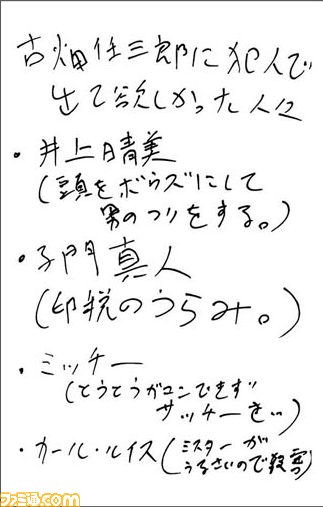 古畑任三郎に犯人で
出て欲しかった人々
・井上晴美
(頭をボウズにして
男のフリをする。)
・子門真人
(印税のうらみ。)
・ミッチー
(とうとうガマンできず
サッチーを…)
・カール・ルイス(ミスターが
うるさいので殺害)
ファミ通.com